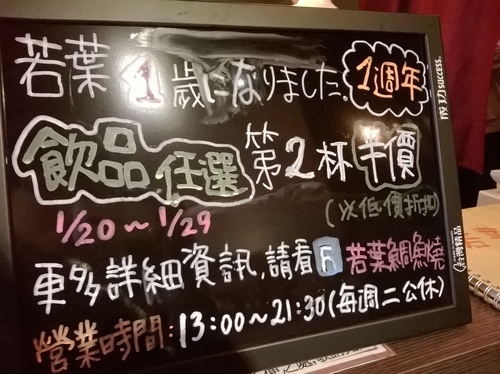 若葉1歲になりました、1週年
飲品任選 第2杯半價
(以低價折扣)
1/20～1/29
更多詳細資訊,請看 若葉鯛魚燒
營業時間:13:00～21:30(每週二公休)
成功 SUCCESS
台灣精品